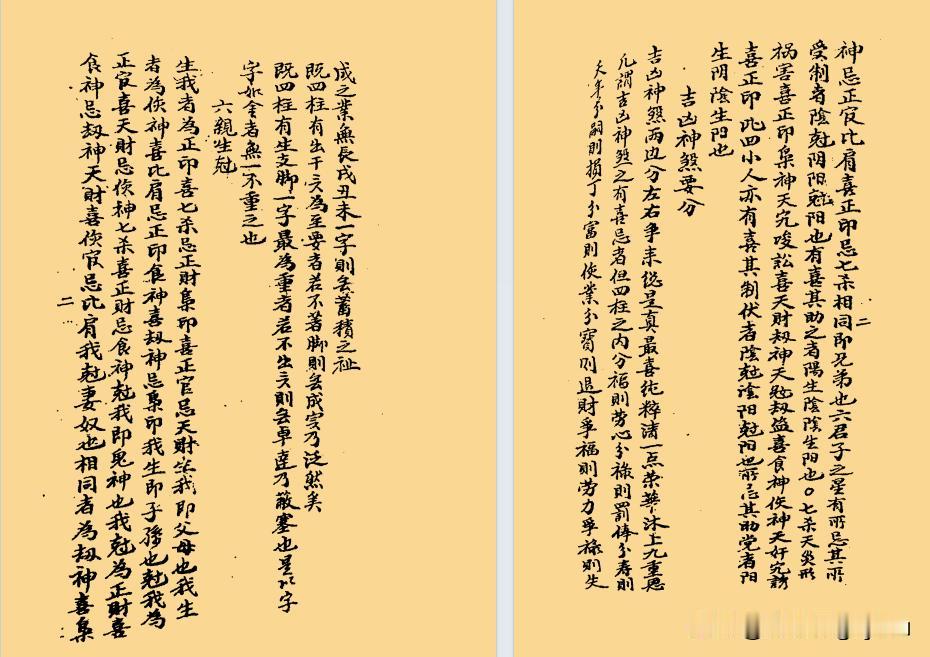 成之業無長戌丑未一字則丟蓄積之祉
既四柱有出干六為至要者若不著脚則丟成实乃泛然矣
既四柱有生支脚一字最為重者若不出六則丟卓達乃蔽塞也是以字
字如金者無一不重之也
六親生尅
生我者為正印喜七杀忌正財梟印喜正官忌天財生我即父母也我生
者為侠神喜比肩忌正印食神喜刼神忌梟印我生即子孫也尅我為
正官喜天財忌侠神七杀喜正財忌食神尅我即鬼神也我尅為正財喜
食神忌刼神天財喜侠官忌比肩我尅妻奴也相同者為刼神喜梟
二
二
神忌正官比肩喜正印忌七杀相同即兄弟也六君子之星有所忌其所
受制者陰尅阴陽尅陽也有喜其助之者陽生陰陰生陽也〇七杀天災形
祸害喜正印梟神天宄唆訟喜天財刼神天尅刼盜喜食神侠神天奸宄謗
喜正印此四小人亦有喜其制伏者陰尅陰陽尅陽也所忌其助党者阳
生阴陰生阳也
吉凶神煞要分
吉凶神煞两边分左右爭来縂是真最喜纯粹清一点荣華沐上九重恩
凡謂吉凶神煞之有喜忌者但四柱之内分福則劳心分禄則罰俸分寿則
夭年分嗣則損丁分富則侠業分寳則退財爭福則劳力爭禄則失